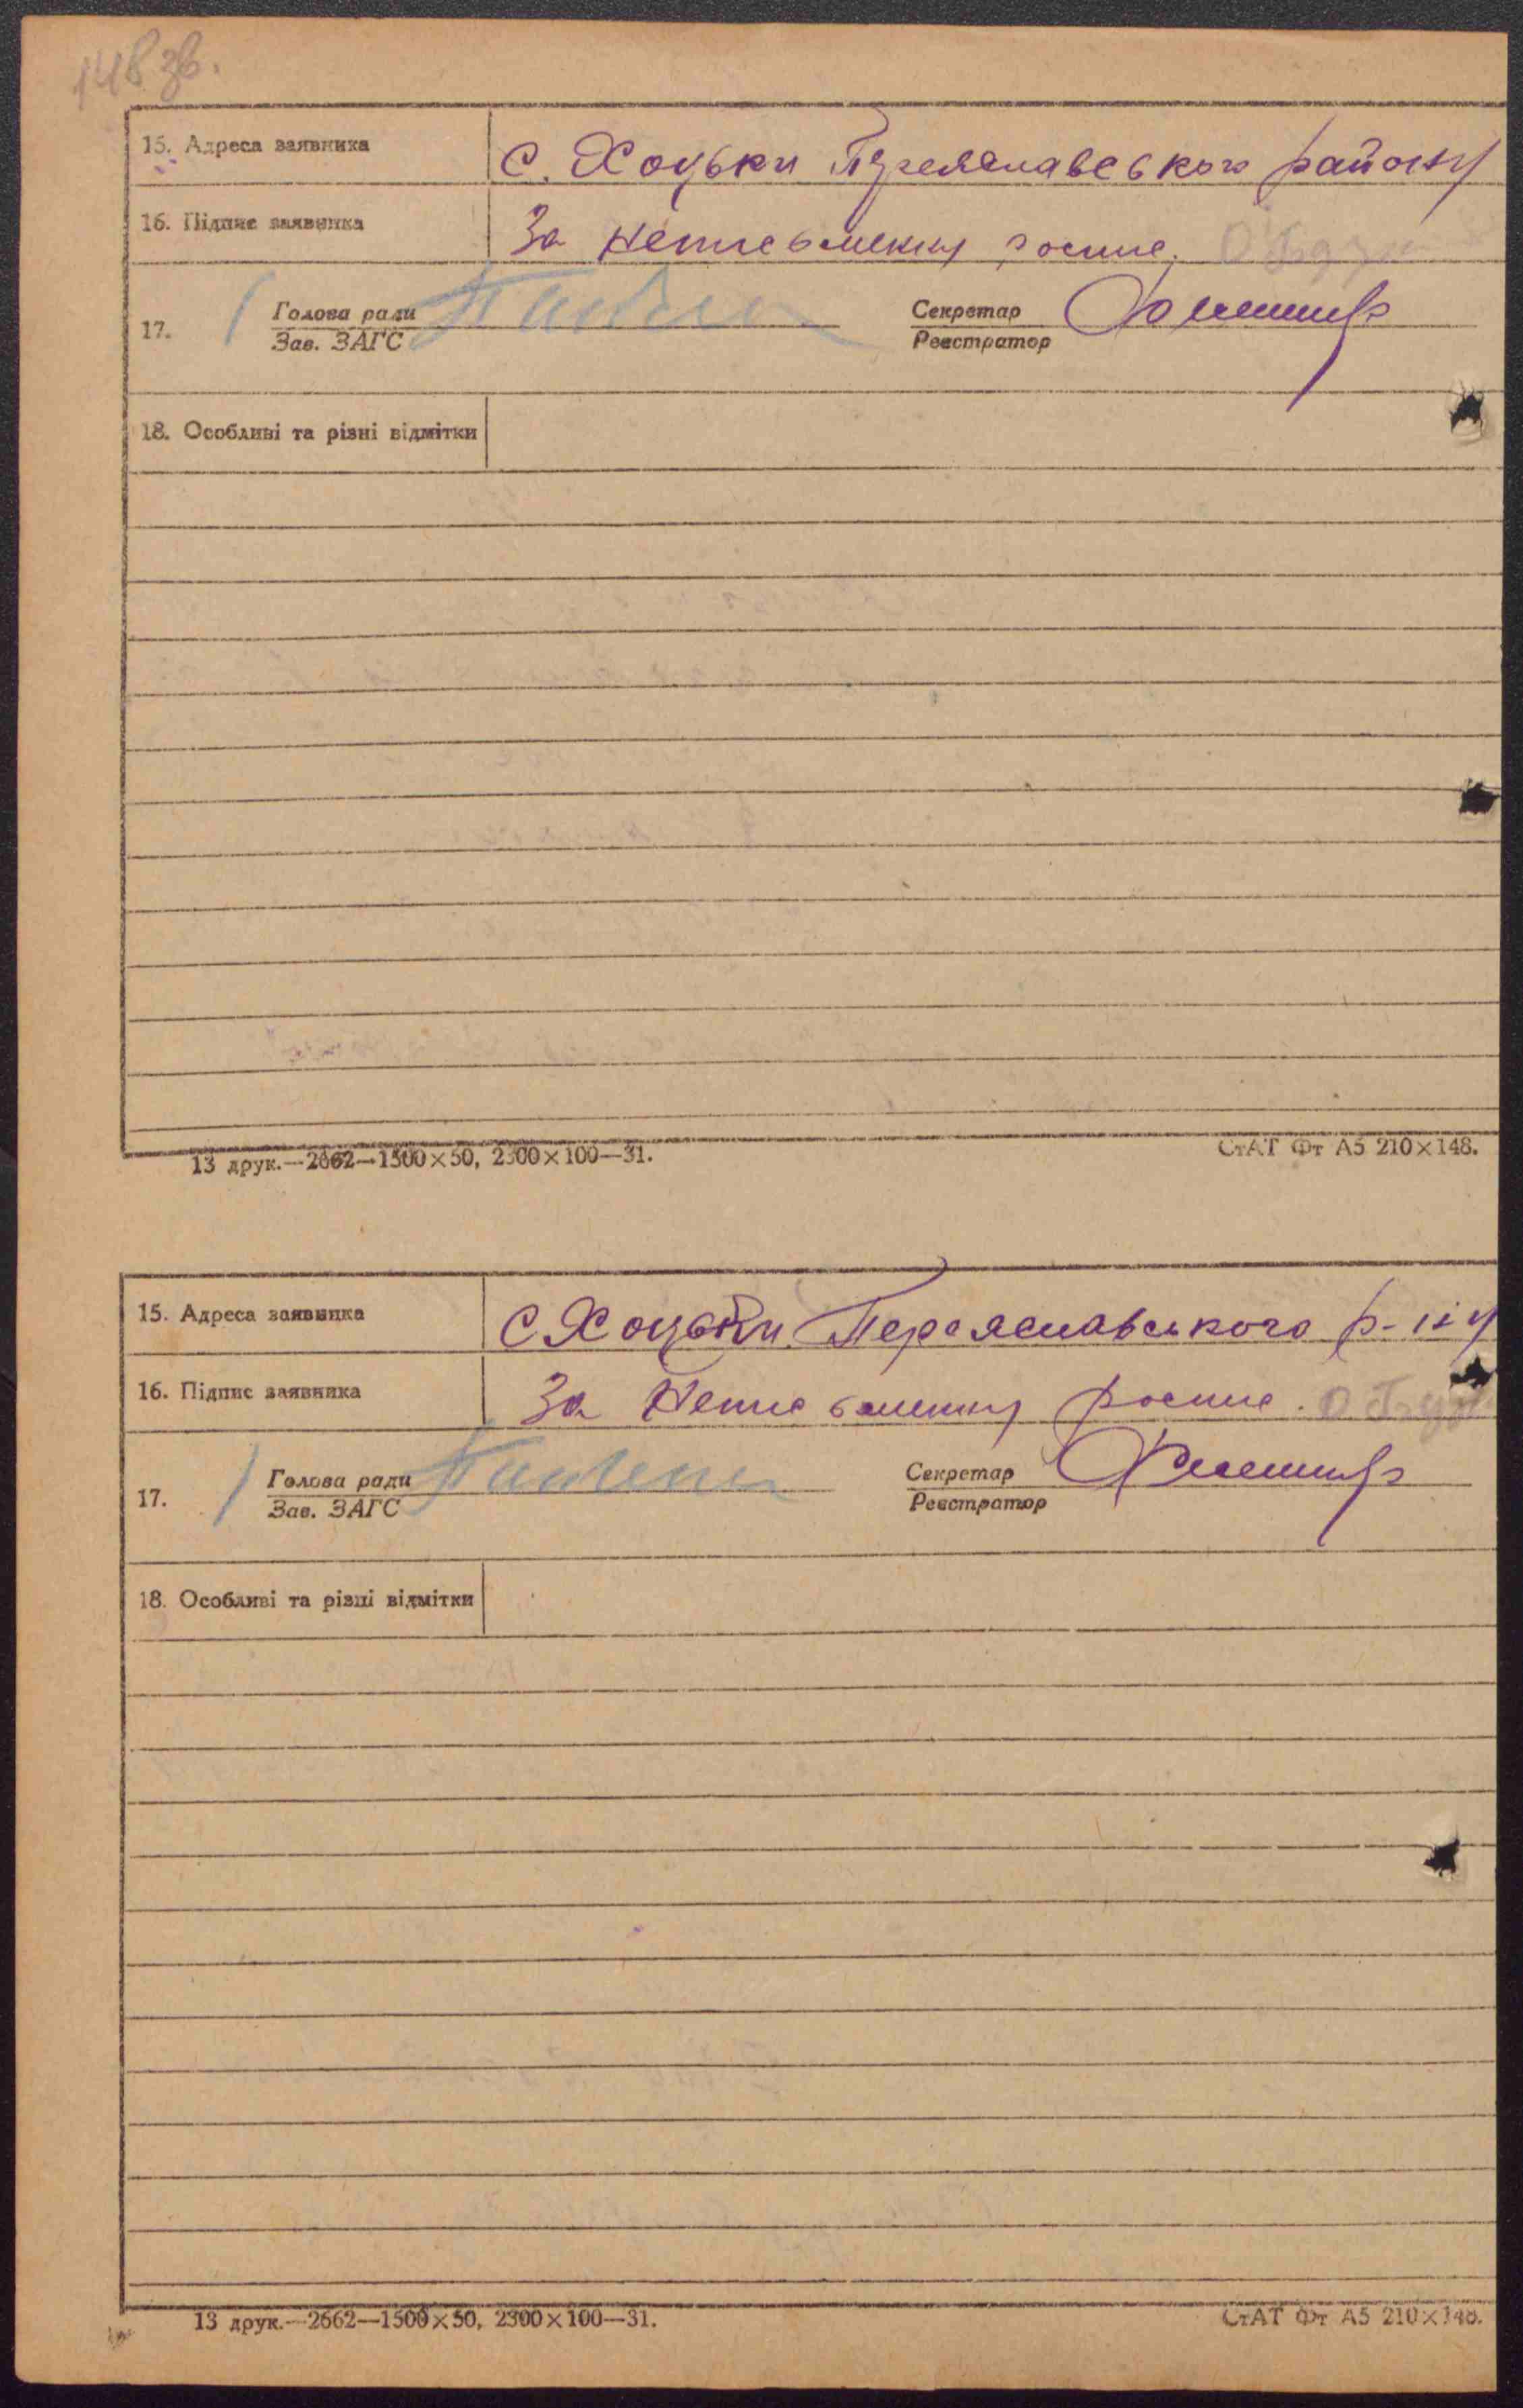 148 зв.
15. Адреса заявника С. Хоцьки Переяславського району
16. Підпис заявника За неписьменну роспис.
17. Голова ради Секретар
Зав. ЗАГС Реєстратор
18. Особливі та різні відмітки
13 друк.—2662—1500×50, 2300×100—31. СтАТ Фт А5 210×148.
15. Адреса заявника С Хоцьки Переяславського р-ну
16. Підпис заявника За Неписьменну роспис.
17. Голова ради Секретар
Зав. ЗАГС Реєстратор
18. Особливі та різні відмітки
13 друк.—2662—1500×50, 2300×100—31. СтАТ Фт А5 210×148.